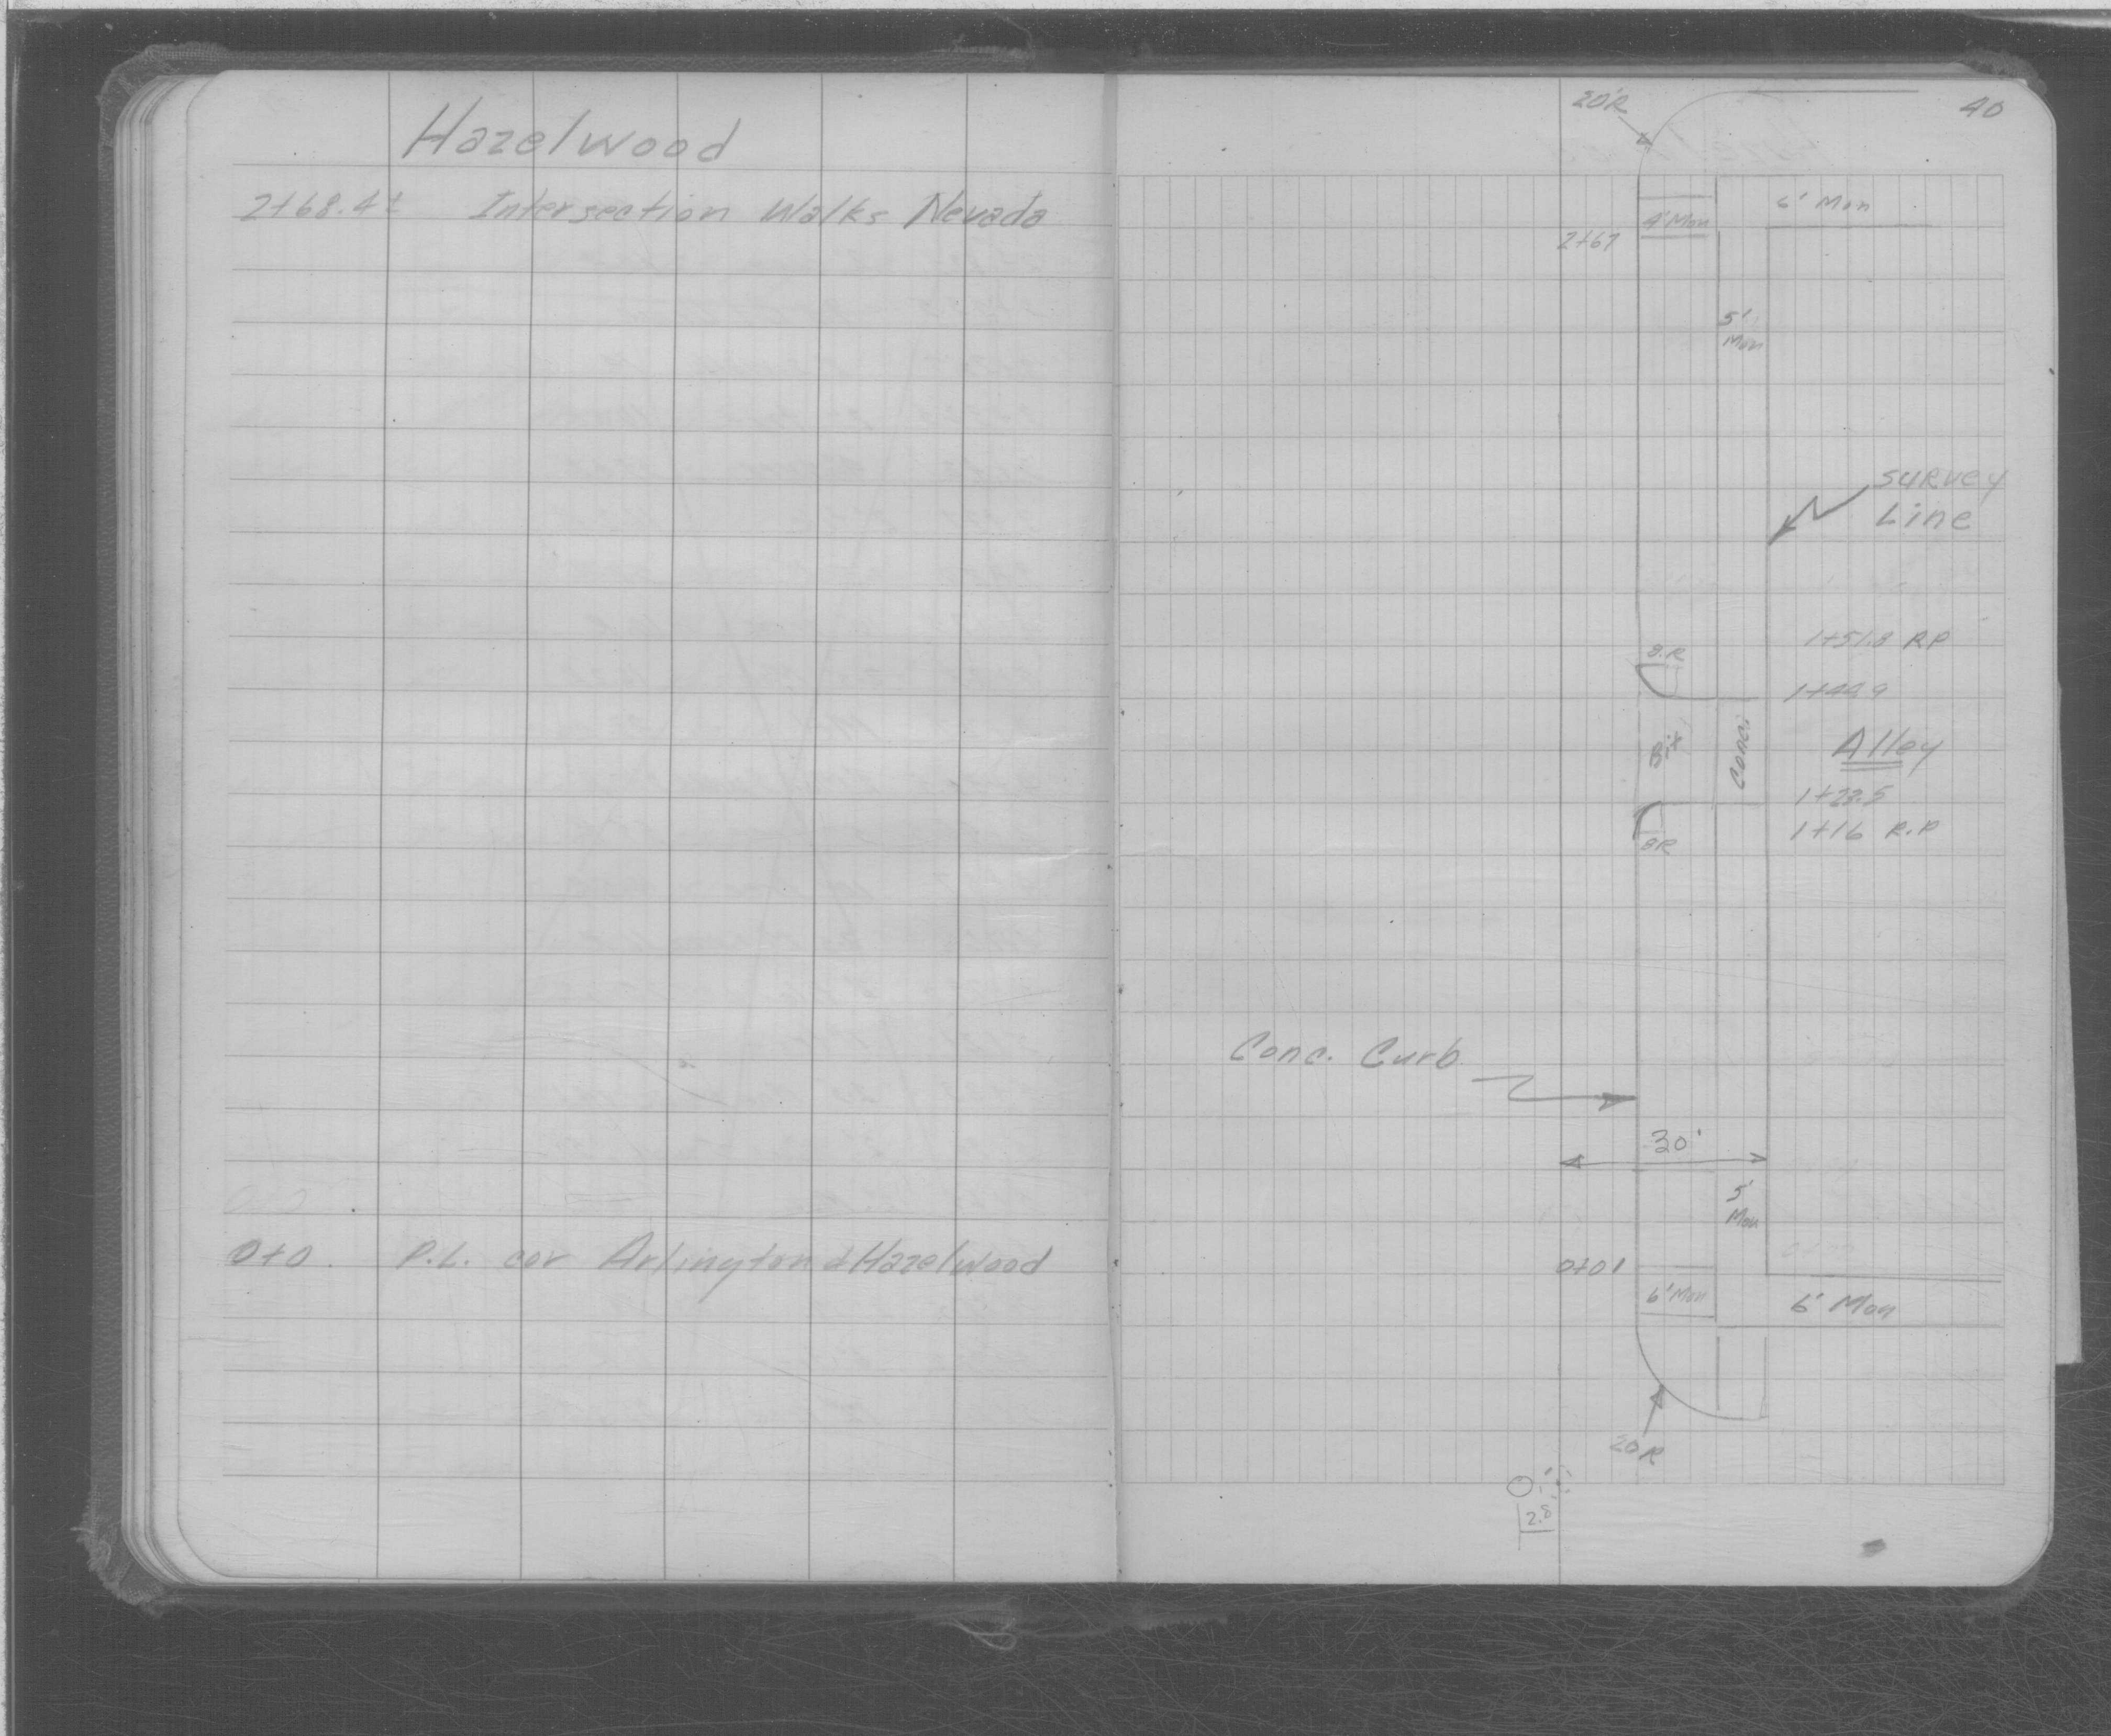 Hazelwood
2+68.4± Intersection Walks Nevada
0+0 P.L. cor Arlington & Hazelwood
40
20'R
6' Mon
4' Mon
2+67
5'
Mon
SURVEY
Line
1+51.8 RP
8.R
1+44.9
Bit
Conc.
Alley
1+23.5
1+16 R.P
8R
Conc. Curb
30'
5'
Mon
0+01
6' Mon
6' Mon
20R
2.8